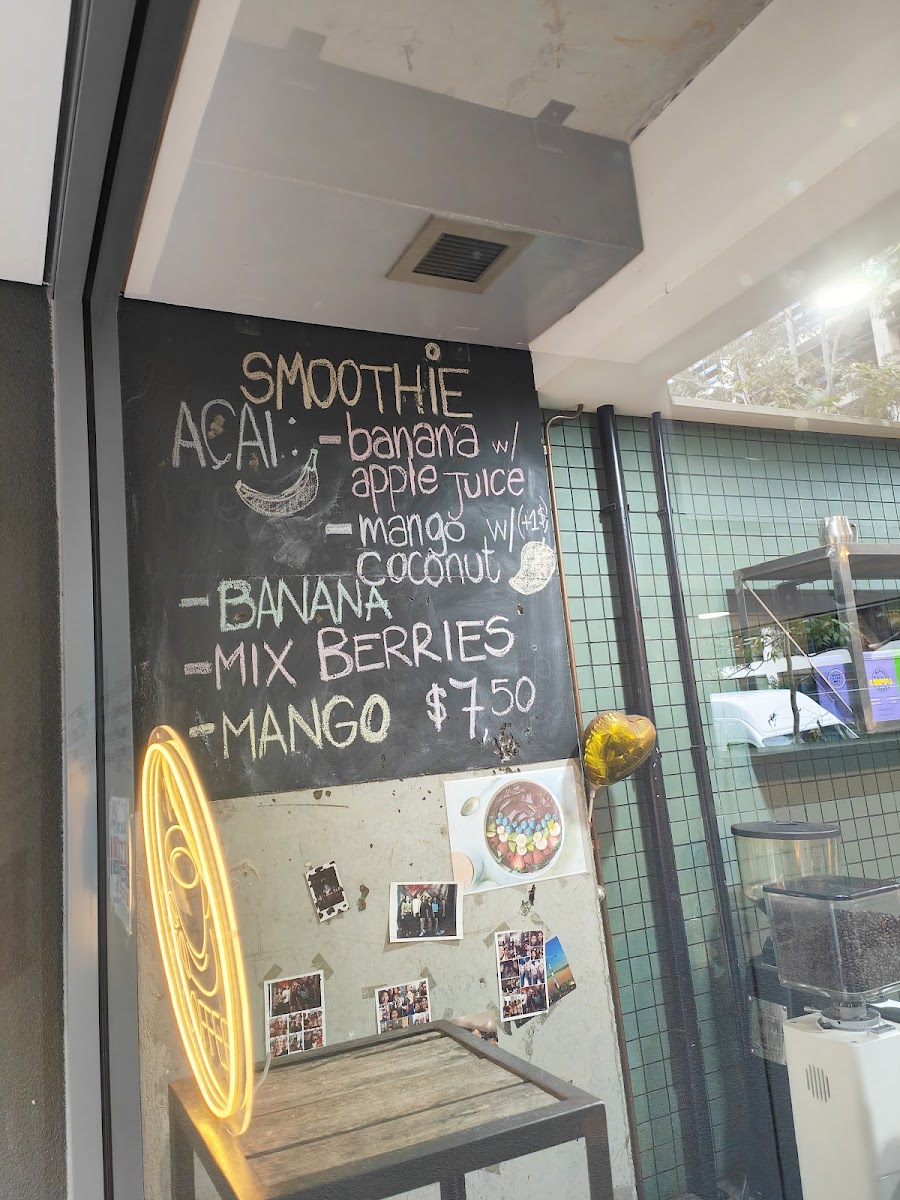 SMOOTHIE
AÇAI: - banana w/
apple juice
- mango w/(+1$)
coconut
- BANANA
- MIX BERRIES
- MANGO $7,50